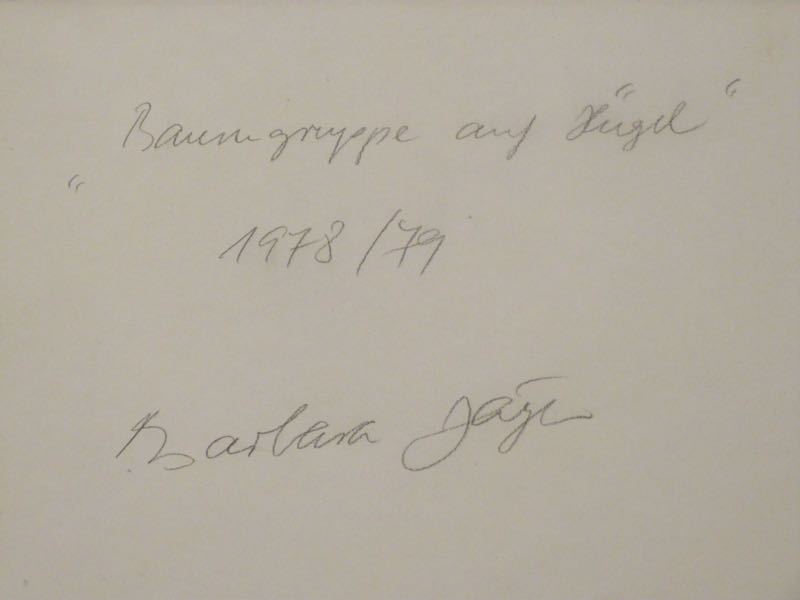 „Baumgruppe auf Hügel“
1978/79
Barbara Jäger